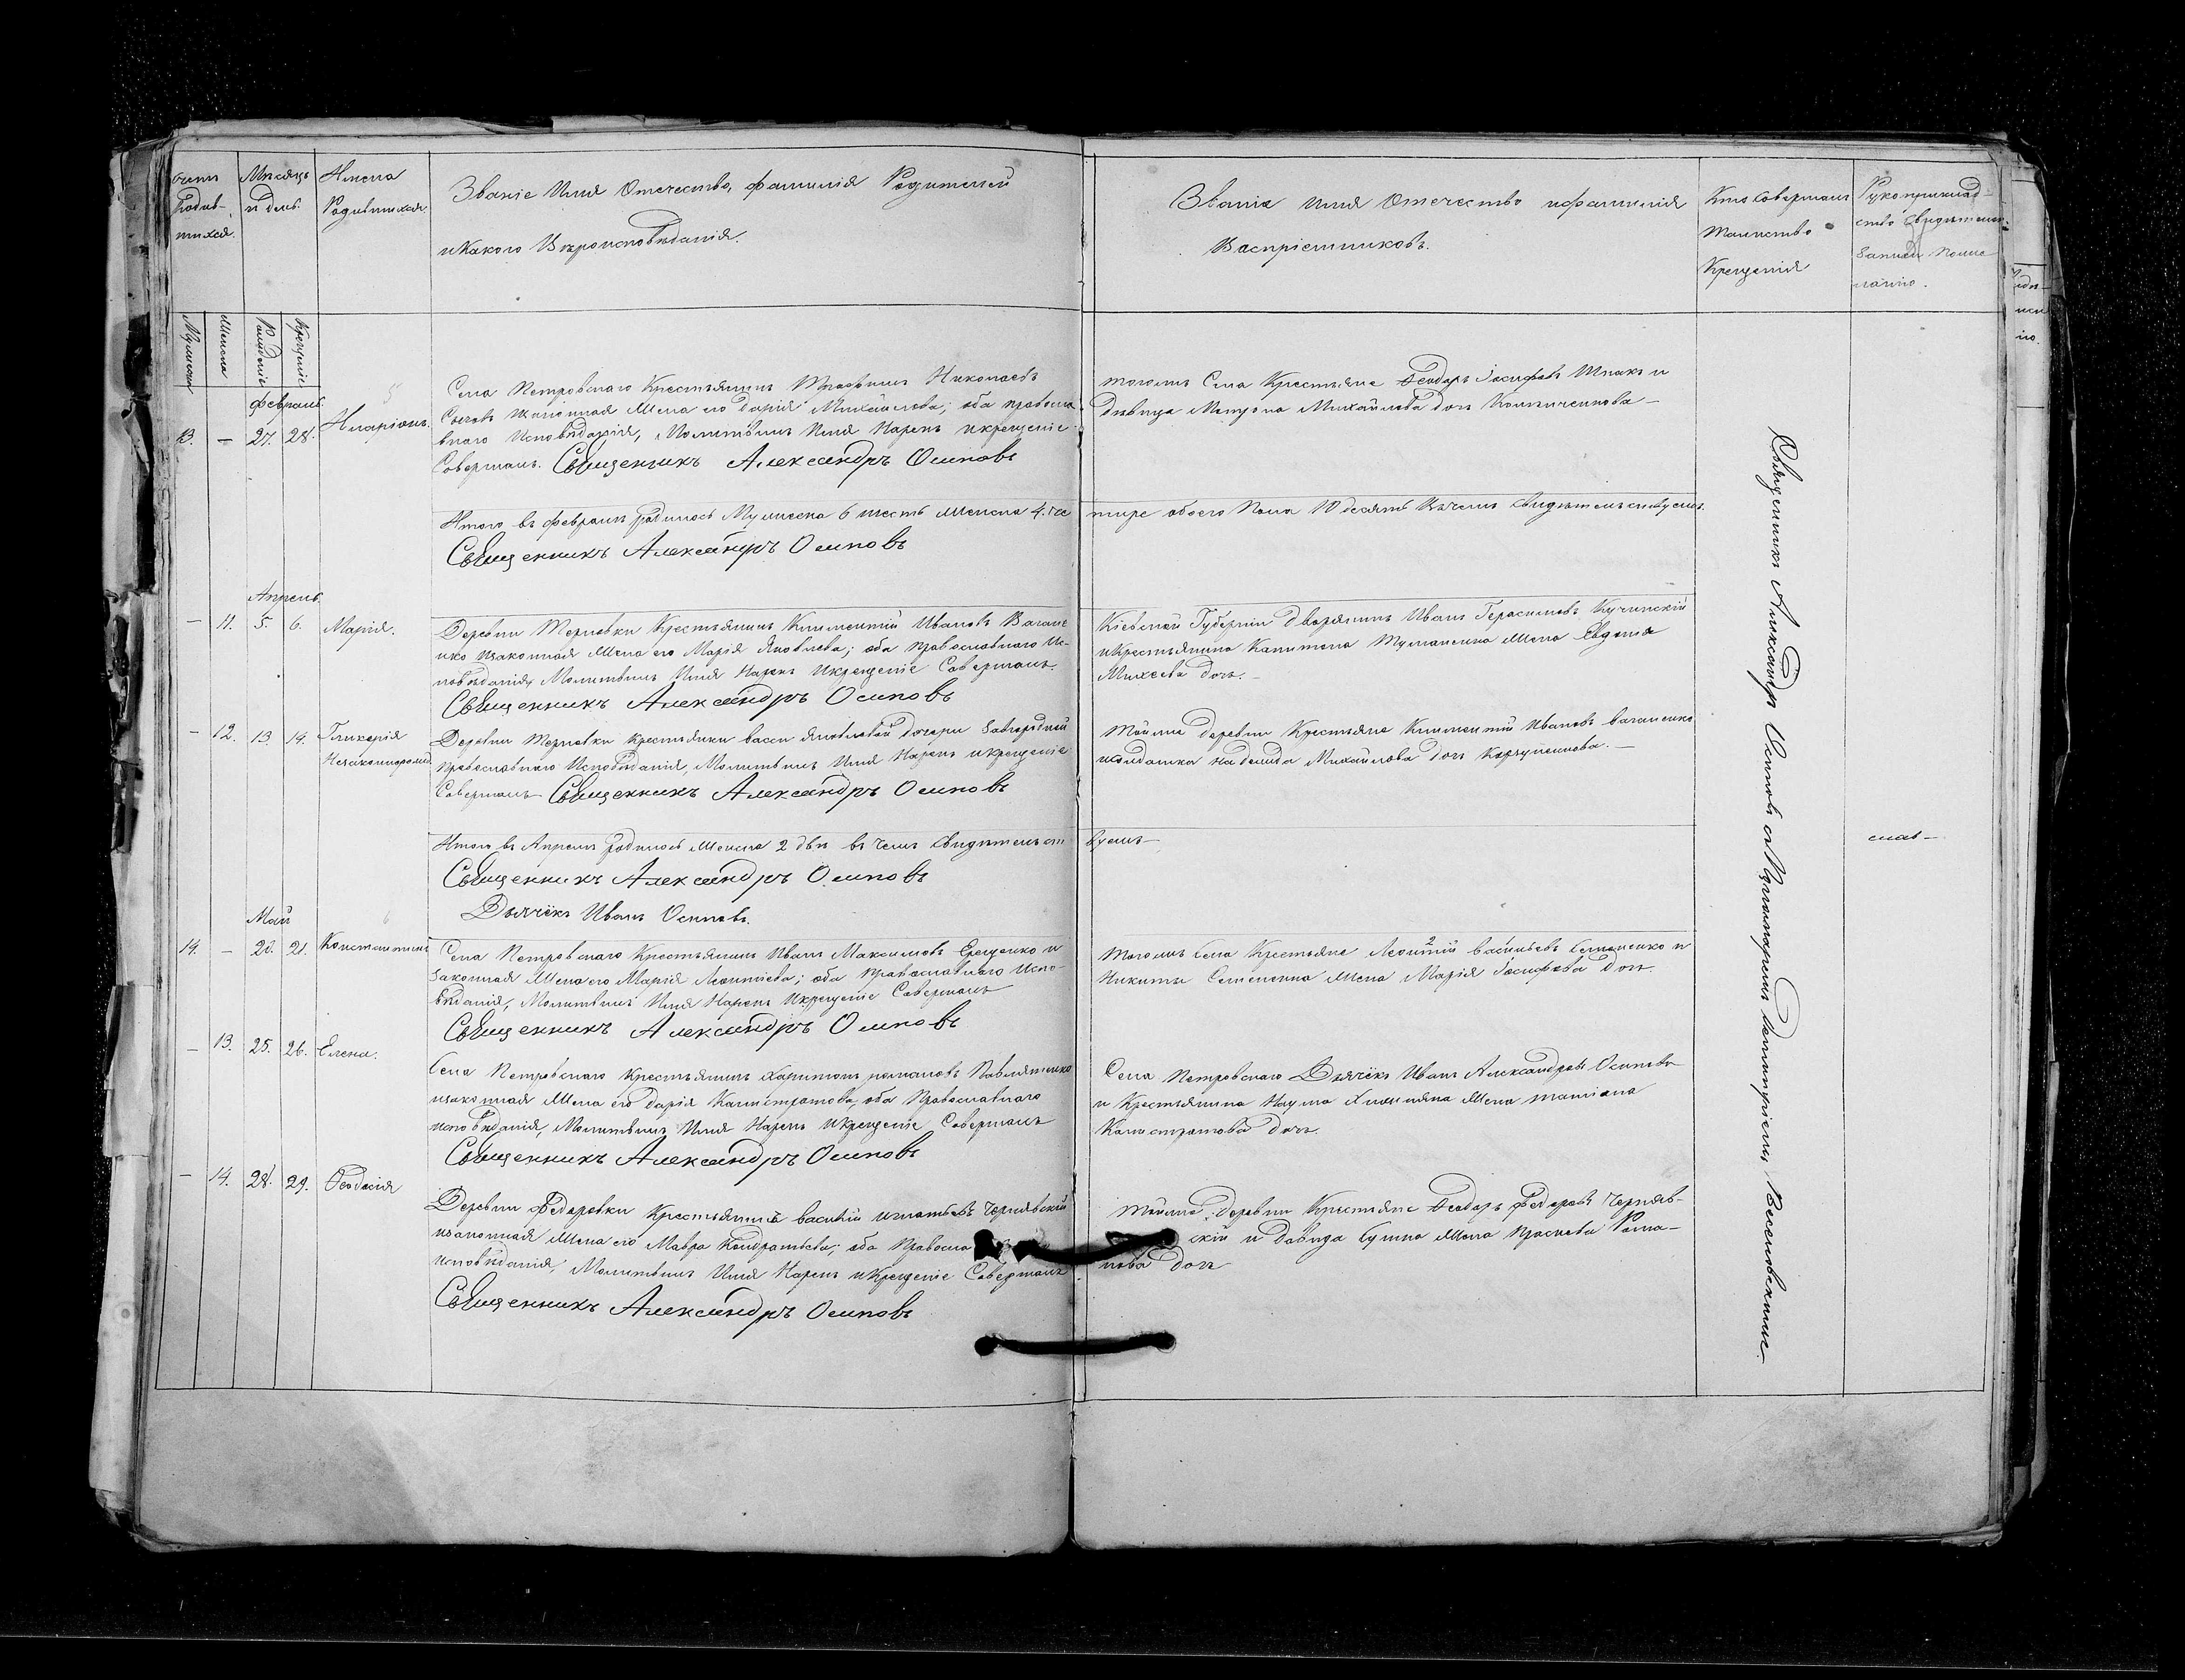 Счетъ
Родив-
шихся.
Мѣсяцъ
и день.
Имена
Родившихся.
Званіе Имя Отечество, фамилія Родителей
и Какого Вѣроисповѣданія.
Званіе имя Отечество и фамилія
Васпріемниковъ.
Кто совершалъ
таинство
Крещенія
Рукоприклад-
ство свидѣтелей
записи по же-
ланію.
Мужеска
Женска
Рожденіе
Крещеніе
февраль.
13. — 27. 28. Иларіонъ.
Села Петровскаго Крестьянинъ Николаевъ
Сычевъ изаконная Жена его Дарія Михайлова; оба правосла
внаго Исповѣданія, Молитвилъ Имя Нарекъ икрещеніе
Совершалъ. Священникъ Александръ Осиповъ
тогожъ Села Крестьяне Феодоръ Іосифовъ Шпакъ и
дѣвица Матрона Михайлова дочь
Итого въ февралѣ родилось Мужеска 6 шесть женска 4. че
тире обоего Пола 10 десять въчемъ свидѣтельствуемъ.
Священникъ Александръ Осиповъ
Апрель
— 11. 5. 6. Марія.
Деревни Терновки Крестьянинъ Климентій Ивановъ Вагане
нко изаконная Жена его Марія Яковлева; оба православнаго Ис-
повѣданія, Молитвилъ Имя Нарекъ икрещеніе Совершалъ.
Священникъ Александръ Осиповъ
Кіевской Губерніи дворянинъ Иванъ Герасимовъ Кучинскій
икрестьянина Капитона Жена Евдокія
Михеева дочь. —
— 12. 13. 14. Гликерія
Незаконнорожд
Деревни Терновки крестьянки васси Яковлевой дочери Завгородней
православнаго Исповѣданія, Молитвилъ Имя Нарекъ икрещеніе
Совершалъ Священникъ Александръ Осиповъ
Тойже деревни Крестьяне Климентій Ивановъ ваганенко
исолдатка надежда Михайлова дочь —
Итого въ Апрелѣ родилось Женска 2 двѣ въ чемъ свидѣтельст
вуемъ —
Священникъ Александръ Осиповъ
Дьячёкъ Иванъ Осиповъ.
Май
14. — 20. 21. Константинъ
Села Петровскаго Крестьянинъ Иванъ Максимовъ Ерещенко и
законная Жена его Марія Леонтіева; оба Православнаго Испо-
вѣданія, Молитвилъ Имя Нарекъ Икрещеніе Совершалъ
Священникъ Александръ Осиповъ
тогожъ села Крестьяне Леонтій васильевъ Семененко и
Никиты Семененка жена Марія Іосифова дочь.
— 13. 25. 26. Елена.
Села Петровскаго Крестьянинъ Харитонъ романовъ Павлятенко
изаконная Жена его дарія Калистратова; оба Православнаго
исповѣданія, Молитвилъ Имя Нарекъ Икрещеніе Совершалъ
Священникъ Александръ Осиповъ
Села Петровскаго Дьячёкъ Иванъ Александровъ Осиповъ
и Крестьянина Наума Жена татіана
Калистратова дочь.
— 14. 28. 29. Феодосія
Деревни Федоровки Крестьянинъ василій игнатьевъ Чернявскій
изаконная Жена его Мавра Кондратьева; оба Правосла
исповѣданія, Молитвилъ Имя Нарекъ икрещеніе Совершалъ
Священникъ Александръ Осиповъ
тойже деревни Крестьяне Феодоръ Федоровъ Черняв-
скій и давида жена Рома-
нова дочь
Священникъ Александръ Осиповъ съ Пономаремъ Веселовскимъ.